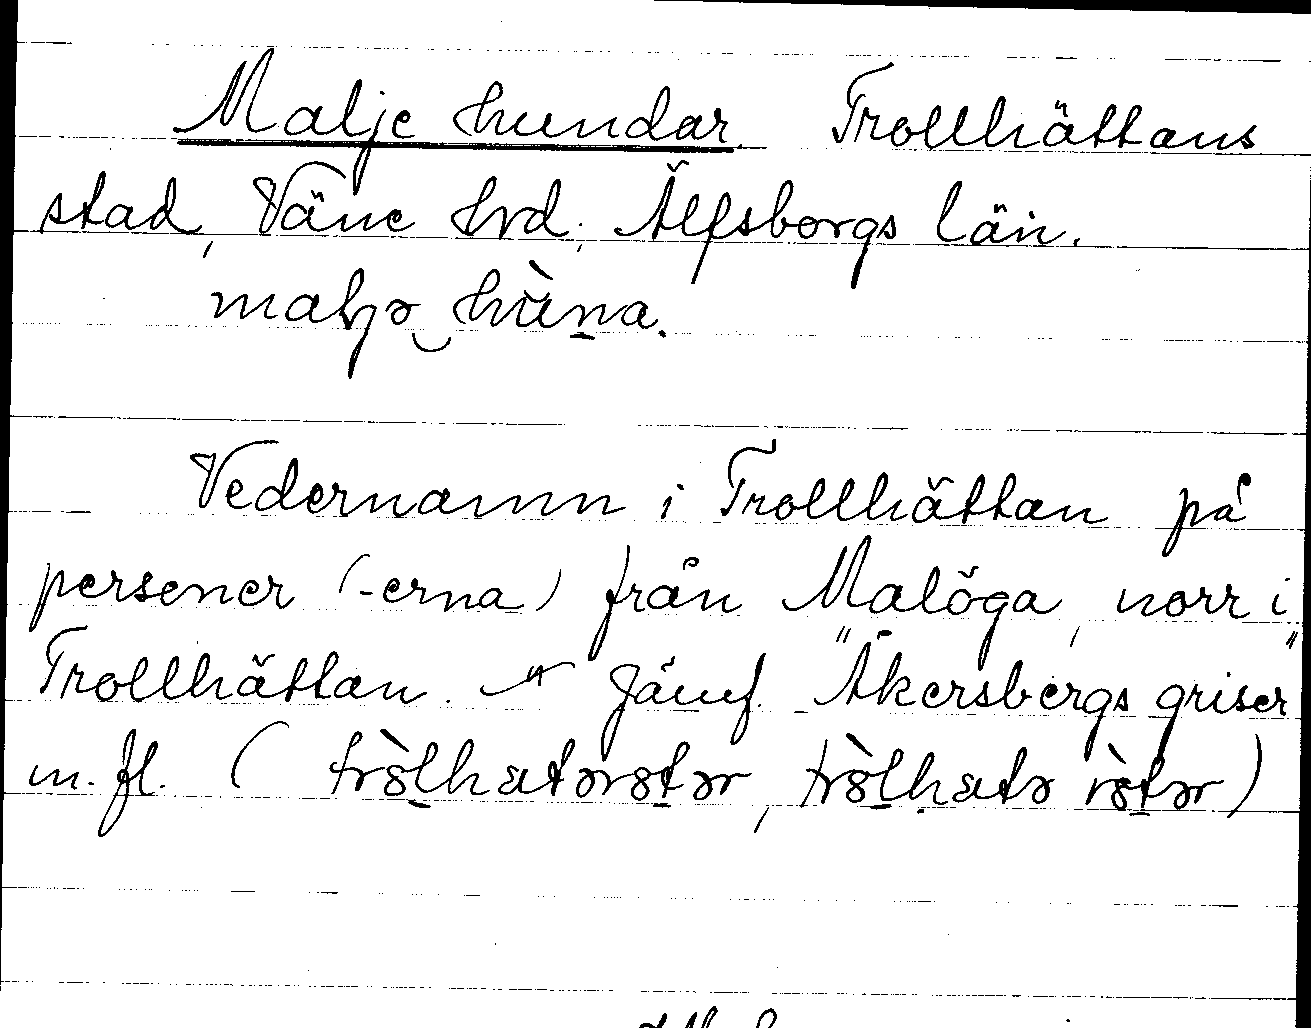 Malje hundar Trollhättans
stad, Väne hrd, Älfsborgs län.
maljə hùna.
Vedernamn i Trollhättan på
persener (-erna) från Malöga, norr i
Trollhättan. Jämf. "Åkersbergs griser"
m. fl. ( trȍlhætərstər, trȍlhætə rȍtər)